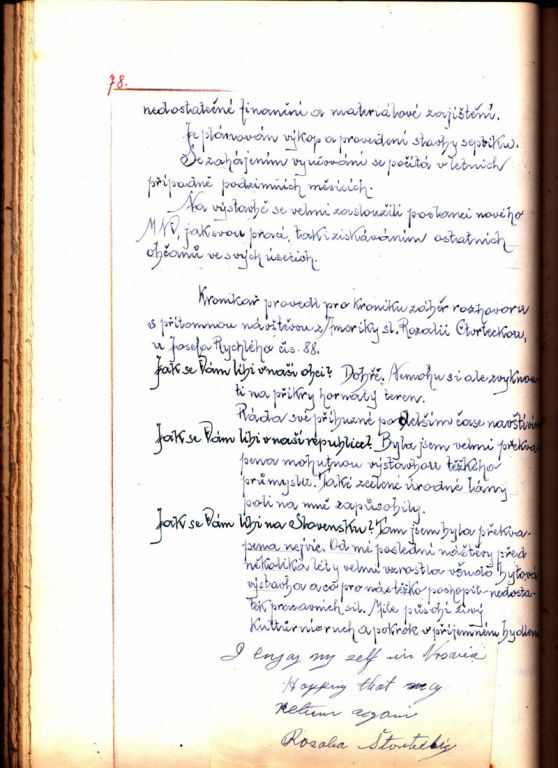 78.
nedostatečné finanční a materiálové zajištění.
Je plánován výkop a provedení stavby septiku.
Se zahájením vyučování se počítá v letních
případně podzimních měsících.
Na výstavbě se velmi zasloužili poslanci nového
MNV, jak svou prací, tak i získáváním ostatních
občanů ve svých úsecích.
Kronikař provedl pro kroniku záběr rozhovoru
s přítomnou návštěvou z Ameriky sl. Rozalii Čtvrtečkou,
u Josefa Rychlého čís. 88.
Jak se Vám líbí v naší obci? Dobře. Nemohu si ale zvyknou
ti na příkrý hornatý teren.
Ráda své příbuzné po delším čase navštívím
Jak se Vám líbí v naší republice? Byla jsem velmi překva
pena mohutnou výstavbou těžkého
průmyslu. Také zcelené úrodné lány
polí na mně zapůsobily.
Jak se Vám líbí na Slovensku? Tam jsem byla překva-
pena nejvíc. Od mé poslední návštěvy před
několika léty velmi vzrostla všude bytová
výstavba a co pro nás těžko pochopit-nedosta-
tek pracovních sil. Mile působí živý
kulturní ruch a pokrok v příjemném bydlení
I enjoy my self in
Hopping that may
Return again
Rosalia